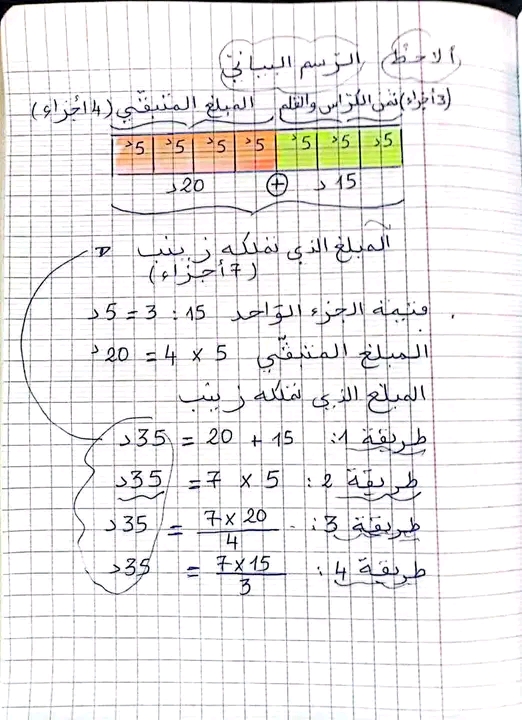 ألاحظ الرسم البياني
(3 أجزاء) ثمن الكراس والقلم المبلغ المتبقّي (4 أجزاء)
5د 5د 5د 5د 5د 5د 5د
15 د + 20د
المبلغ الذي تملكه زينب
(7 أجزاء)
قيمة الجزء الواحد 15 : 3 = 5د
المبلغ المتبقّي 5 × 4 = 20د
المبلغ الذي تملكه زينب
طريقة 1: 15 + 20 = 35د
طريقة 2: 5 × 7 = 35د
طريقة 3: 7×20/4 = 35د
طريقة 4: 7×15/3 = 35د